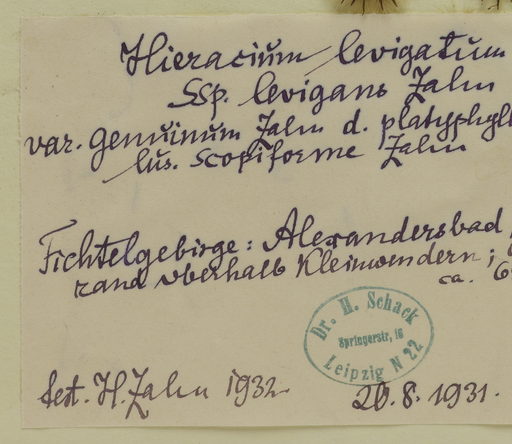 Hieracium levigatum
Ssp. levigans Zahn
var. genuinum Zahn d. platyphyll
lus. scopiforme Zahn
Fichtelgebirge: Alexandersbad,
rand oberhalb Kleinwendern;
ca. 6
Dr. H. Schack
Springerstr. 16
Leipzig N 22
det. H. Zahn 1932
20.8.1931.